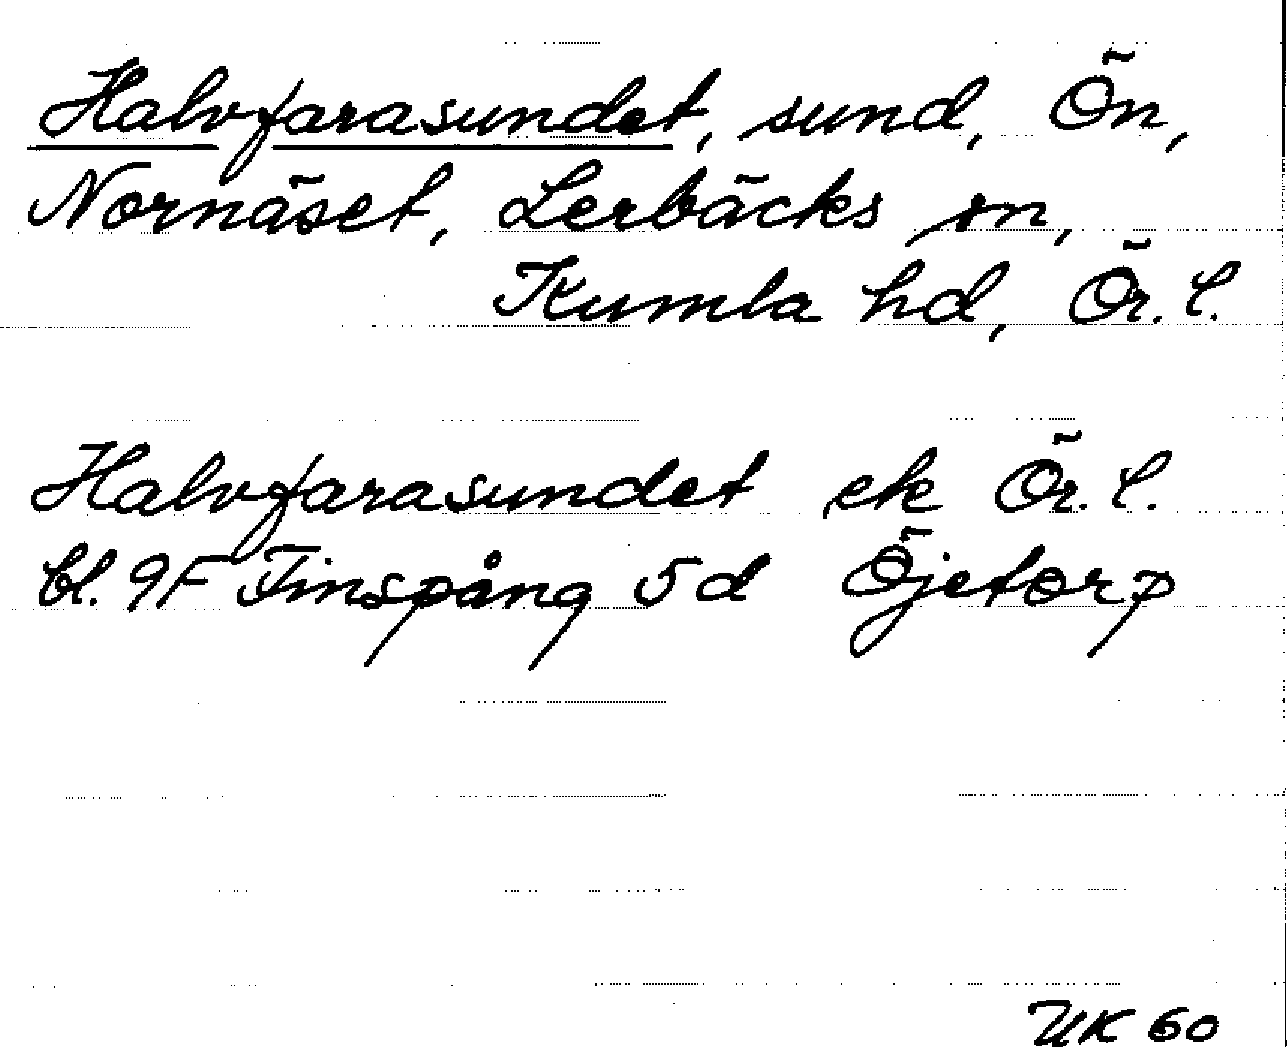 Halvfarasundet, sund, Ön,
Nornäset, Lerbäcks sn,
Kumla hd, Ör. l.
Halvfarasundet ek Ör. l.
bl. 9F Finspång 5d Öjetorp
UK 60